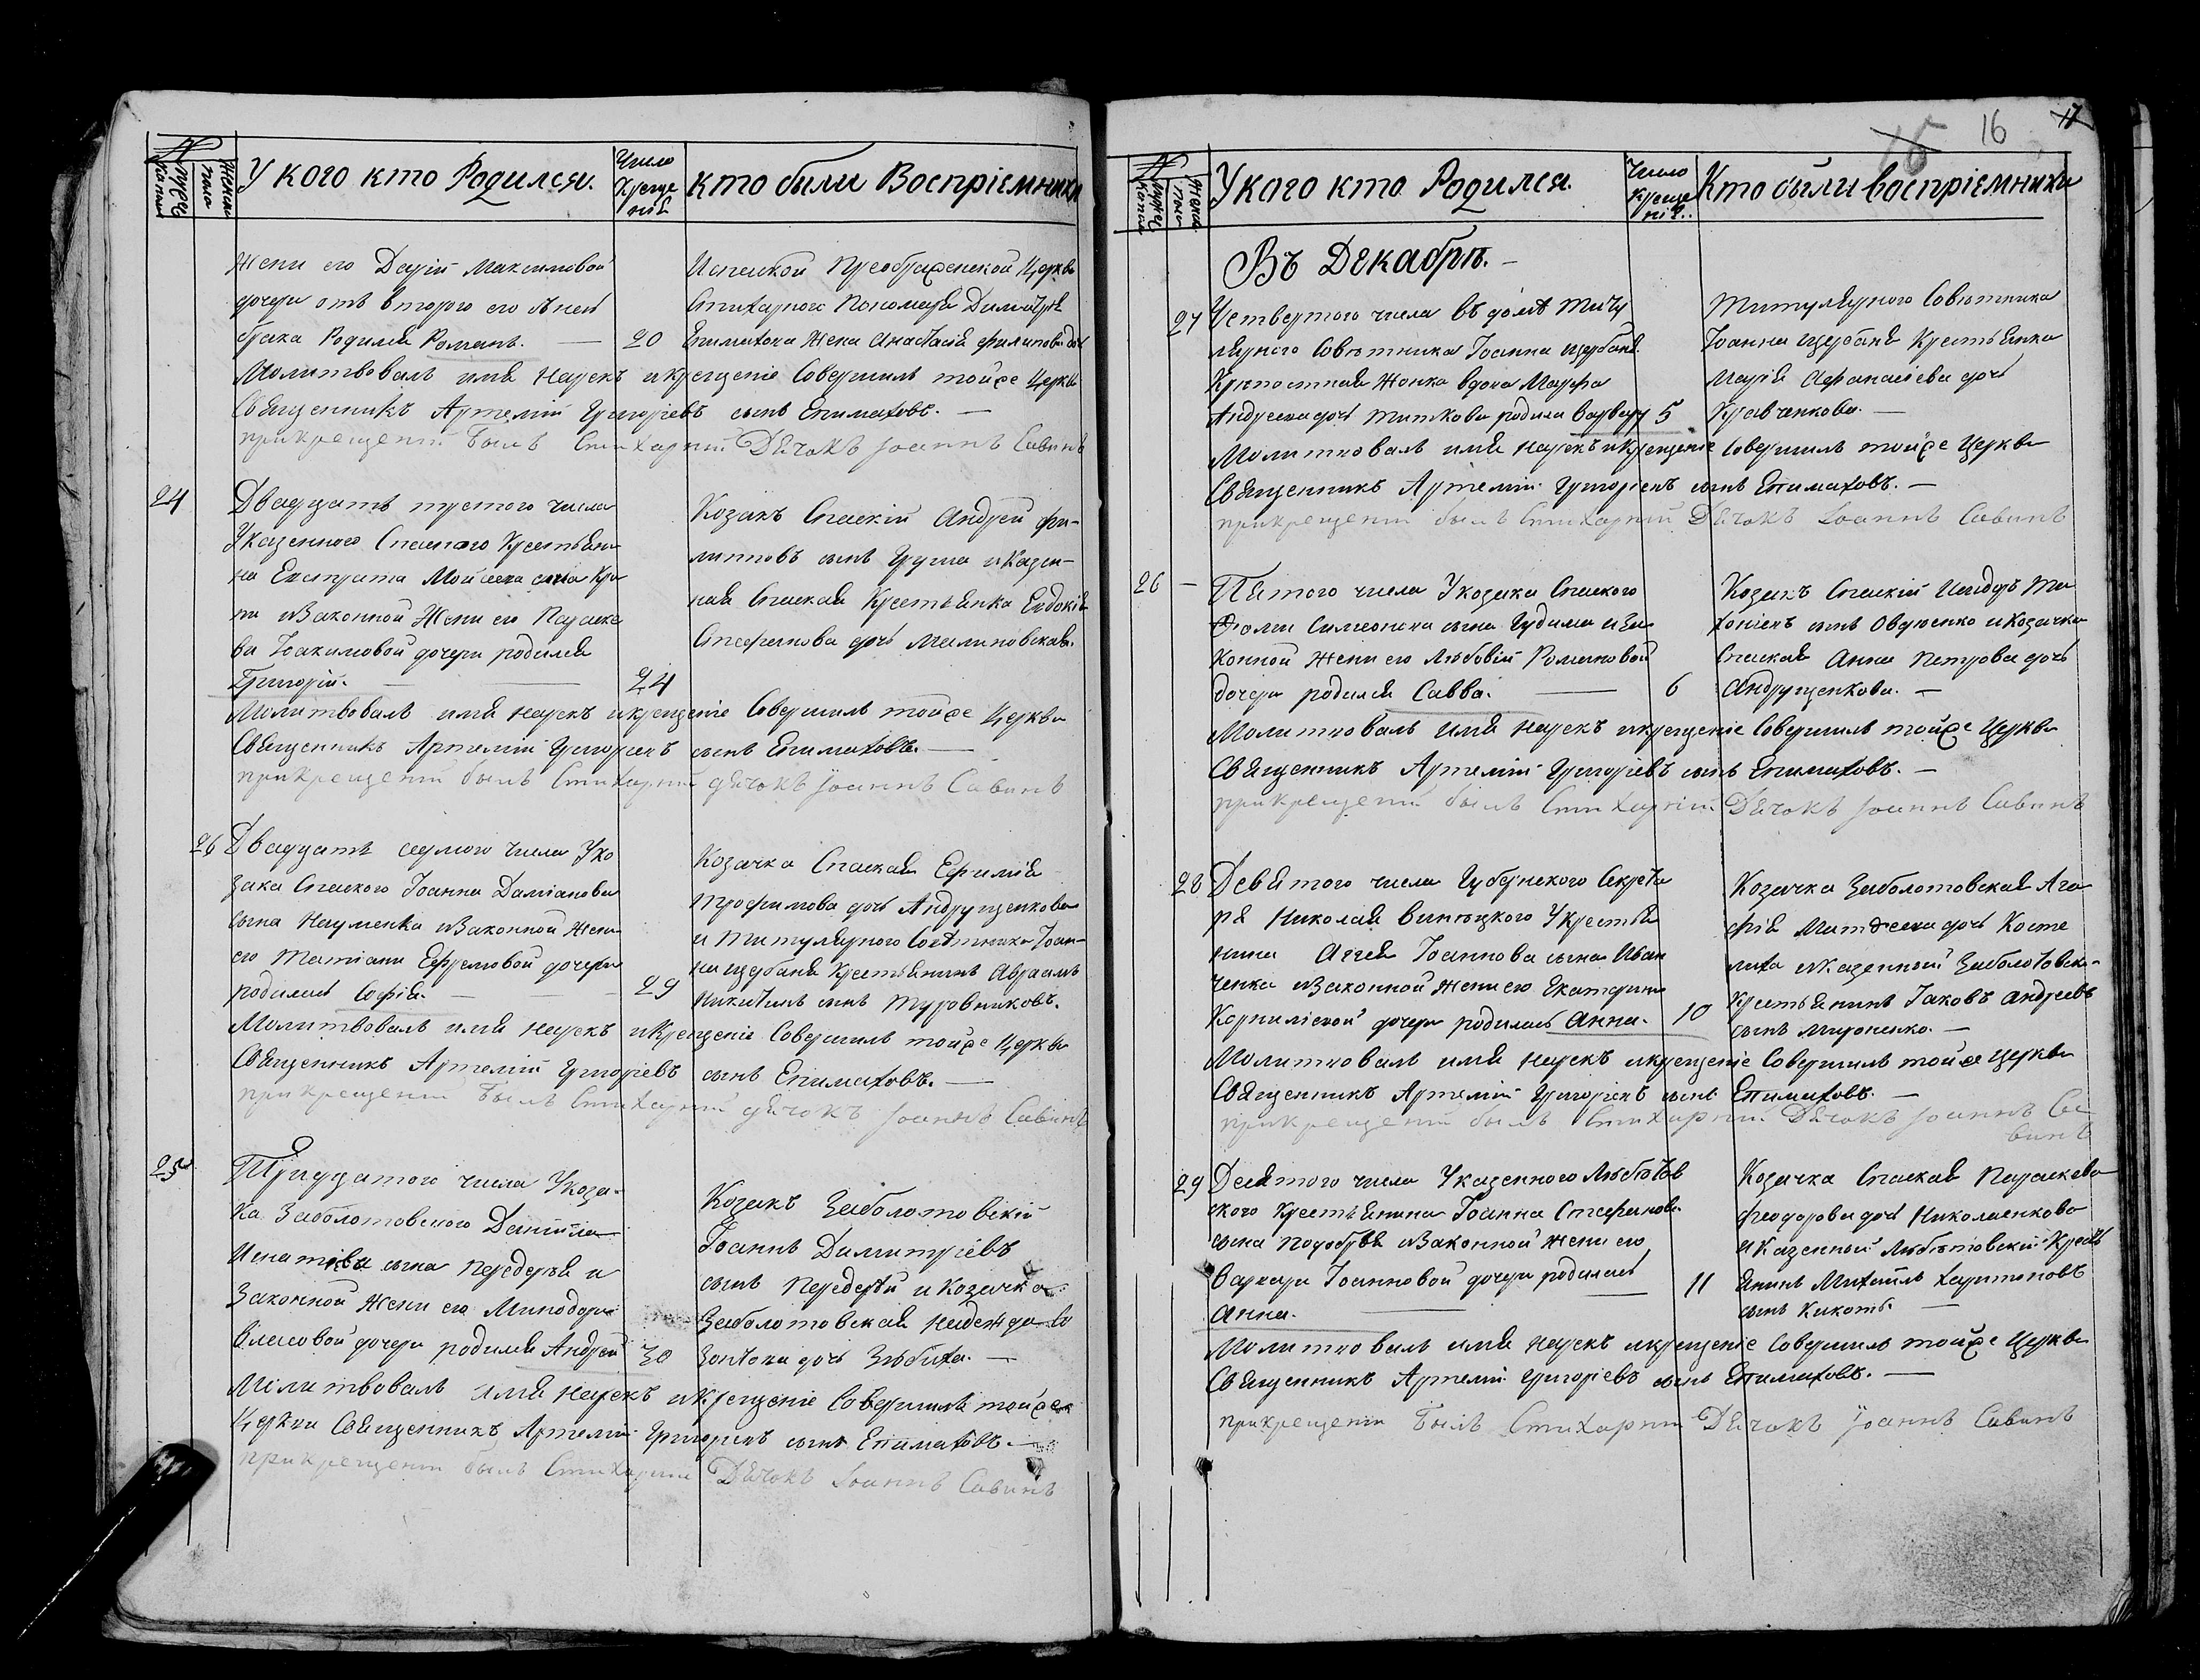 №
Мужес
ка пола
Женска
пола
У кого кто Родился.
Число
Креще
нія
кто были Воспріемники
Жени его Даріи Максимовой
дочери отъ второго его с нею
брака Родился Романъ. — 20
Спаской Преображенской Церкви
Стихарного Пономаря Димитрія
Епимахова Жена Анастасія Филипова дочь
Молитвовалъ имя Нарекъ и крещеніе Совершилъ тойже Церкви
Священникъ Артемій Григоріевъ сынъ Епимаховъ. —
при крещеніи Былъ Стихарній Дячокъ Іоаннъ Савинъ
24
Двадцать третого числа
У казенного Спаского Крестьяни
на Евстрата Мойсеева сына Кри
ви и Законной Жени его Параске
ви Іоакимовой дочери родился
Григорій. — 24
Козакъ Спаскій Андрей Фи-
липповъ сынъ Груша и Казен-
ная Спаская Крестьянка Евдокія
Стефанова дочь МалиновскаЯ.
Молитвовалъ имя нарекъ и крещеніе Совершилъ тойже Церкви
Священникъ Артемій Григоріевъ сынъ Епимаховъ. —
при крещеніи былъ Стихарній дячокъ Іоаннъ Савинъ
26
Двадцать седмого числа У ко
зака Спаского Іоанна Даміанова
сына Науменка и Законной Жени
его Татіани Ефремовой дочери
родилась Софія. — 29
Козачка Спаская Ефимія
Трофимова дочь Андрущенкова
и Титулярного Советника Іоан-
на Щербаня Крестьянинъ Авраамъ
Никитинъ сынъ Туровниковъ.
Молитвовалъ имя нарекъ и Крещеніе Совершилъ тойже Церкви
Священникъ Артемій Григоріевъ сынъ Епимаховъ. —
при крещеніи Былъ Стихарній дячокъ Іоаннъ Савинъ
25
Тридцатого числа У коза-
ка Заболотовского Даніила
Игнатіева сына Передерѣя и
Законной Жени его Минодори
Власовой дочери родился Андрей 30
Козакъ Заболотовскій
Іоаннъ Димитріевъ
сынъ Передерѣй и Козачка
Заболотовская Надежда Со
зонтова дочь Зѣбиха. —
Молитвовалъ имя нарекъ и Крещеніе Совершилъ тойже
Церкви Священникъ Артемій Григоріевъ сынъ Епимаховъ. —
при крещеніи былъ Стихарній Дячокъ Іоаннъ Савинъ
15 16 17
№
Мужес
ка пола
Женска
пола
У кого кто Родился.
Число
Креще
нія.
Кто были воспріемники
Въ Декабрѣ. —
27
Четвертого числа въ домѣ Титу
лярного Совѣтника Іоанна Щербаня
Крѣпостная Жонка вдова Марфа
Андреева дочь Титкова родила Варвару 5
Титулярного Совѣтника
Іоанна Щербаня Крестьянка
Марія Афанасіева дочь
Кравченкова. —
Молитвовалъ имя нарекъ и Крещеніе Совершилъ тойже Церкви
Священникъ Артемій Григоріевъ сынъ Епимаховъ. —
при крещеніи былъ Стихарній Дячокъ Іоаннъ Савинъ
26 —
Пятого числа У козака Спаского
Фоми Симеонова сына Гудима и За
конной Жени его Любовіи Романовой
дочери родился Савва. — 6
Козакъ Спаскій Исидоръ Ти
хоніевъ сынъ Овдѣенко и Козачка
Спаская Анна Петрова дочь
Андрущенкова. —
Молитвовалъ имя нарекъ и крещеніе Совершилъ тойже Церкви
Священникъ Артемій Григоріевъ сынъ Епимаховъ. —
при крещеніи былъ Стихарній Дячокъ Іоаннъ Савинъ
28
Девятого числа Губернского Секрета
ря Николая Виницкого У крестья
нина Аггея Іоаннова сына Иван
ченка и Законной Жени его Екатерини
Корниліевой дочери родилась Анна. 10
Козачка Заболотовская Ага
фія Матфеева дочь Косте
лиха и Казенной Заболотовск-
Крестьянинъ Іаковъ Андреевъ
сынъ Мироненко. —
Молитвовалъ имя нарекъ и крещеніе Совершилъ тойже Церкви
Священникъ Артемій Григоріевъ сынъ Епимаховъ. —
при крещеніи былъ Стихарній Дячокъ Іоаннъ Са
винъ
29
Десятого числа У казенного Любитов
ского Крестьянина Іоанна Стефанова
сына Подобрѣя и Законной Жени его
Варвари Іоанновой дочери родилась
Анна. — 11
Козачка Спаская Параскева
Феодорова дочь Николаенкова
и Казенной Любитовскій Крестъ
янинъ Михаилъ Харитоновъ
сынъ Кикоть. —
Молитвовалъ имя нарекъ и крещеніе Совершилъ тойже Церкви
Священникъ Артемій Григоріевъ сынъ Епимаховъ. —
при крещеніи Былъ Стихарній Дячокъ Іоаннъ Савинъ